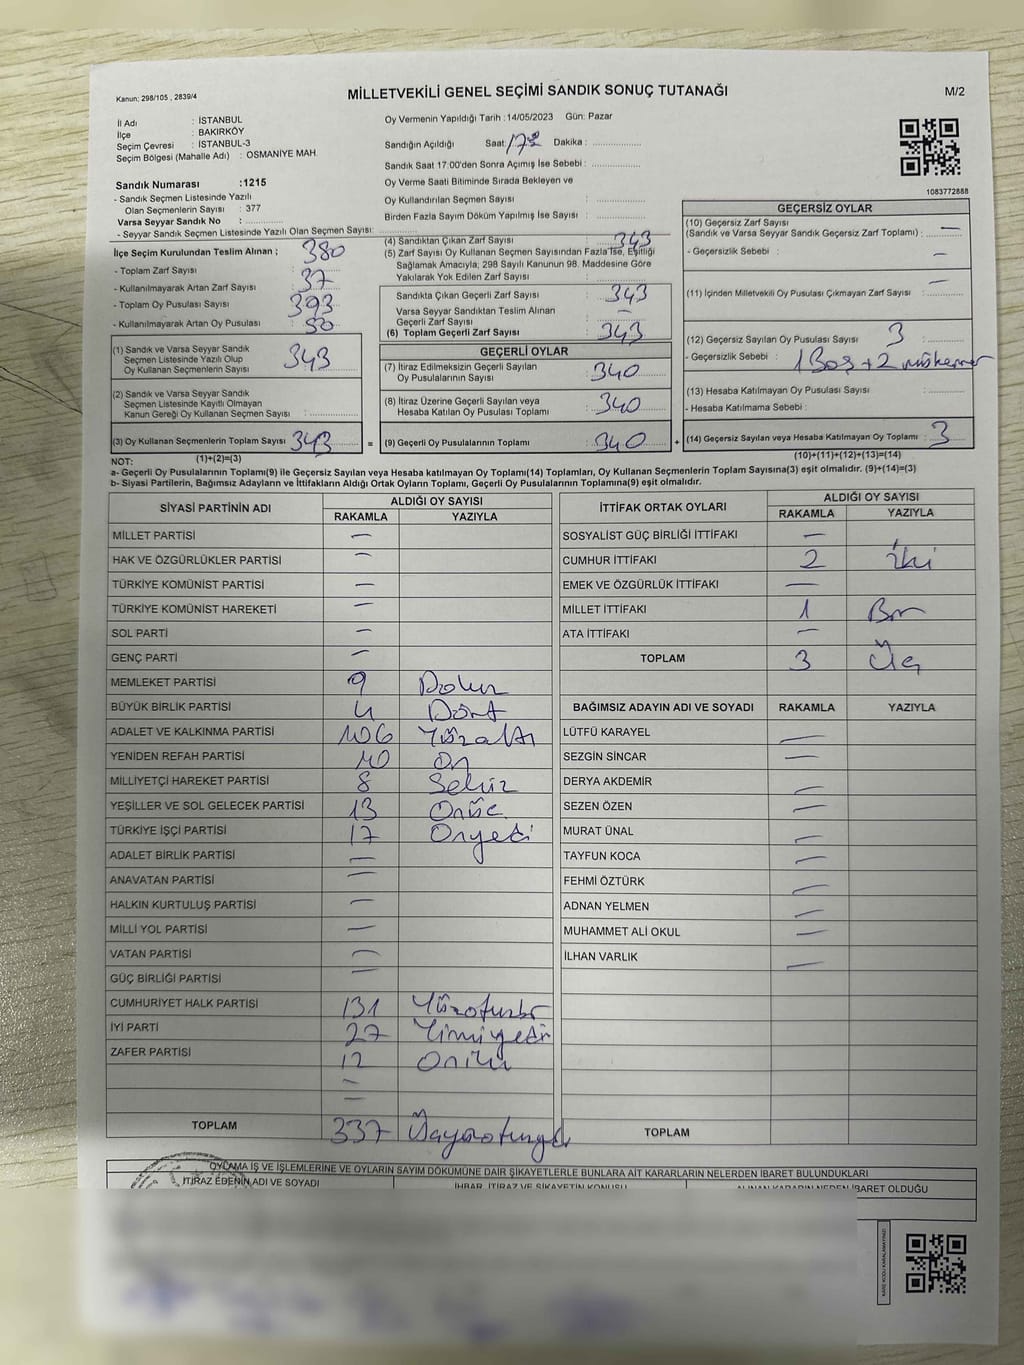 Kanun: 298/105 , 2839/4
MİLLETVEKİLİ GENEL SEÇİMİ SANDIK SONUÇ TUTANAĞI
M/2
İl Adı : İSTANBUL
İlçe : BAKIRKÖY
Seçim Çevresi : İSTANBUL-3
Seçim Bölgesi (Mahalle Adı) : OSMANİYE MAH.
Oy Vermenin Yapıldığı Tarih : 14/05/2023 Gün: Pazar
Sandığın Açıldığı Saat: Dakika : ................
Sandık Saat 17:00'den Sonra Açımış İse Sebebi : ................
Oy Verme Saati Bitiminde Sırada Bekleyen ve
Oy Kullandırılan Seçmen Sayısı : ................
Birden Fazla Sayım Döküm Yapılmış İse Sayısı : ................
1083772888
Sandık Numarası :1215
- Sandık Seçmen Listesinde Yazılı
Olan Seçmenlerin Sayısı : 377
Varsa Seyyar Sandık No : ................
- Seyyar Sandık Seçmen Listesinde Yazılı Olan Seçmen Sayısı: ................
İlçe Seçim Kurulundan Teslim Alınan ;
- Toplam Zarf Sayısı : 380
- Kullanılmayarak Artan Zarf Sayısı : 37
- Toplam Oy Pusulası Sayısı : 393
- Kullanılmayarak Artan Oy Pusulası : 50
(1) Sandık ve Varsa Seyyar Sandık
Seçmen Listesinde Yazılı Olup
Oy Kullanan Seçmenlerin Sayısı : 343
(2) Sandık ve Varsa Seyyar Sandık
Seçmen Listesinde Kayıtlı Olmayan
Kanun Gereği Oy Kullanan Seçmen Sayısı : ................
(3) Oy Kullanan Seçmenlerin Toplam Sayısı : 343
(1)+(2)=(3)
=
(4) Sandıktan Çıkan Zarf Sayısı : 343
(5) Zarf Sayısı Oy Kullanan Seçmen Sayısından Fazla İse, Eşitliği
Sağlamak Amacıyla, 298 Sayılı Kanunun 98. Maddesine Göre
Yakılarak Yok Edilen Zarf Sayısı : ................
Sandıkta Çıkan Geçerli Zarf Sayısı : 343
Varsa Seyyar Sandıktan Teslim Alınan
Geçerli Zarf Sayısı : —
(6) Toplam Geçerli Zarf Sayısı : 343
GEÇERLİ OYLAR
(7) İtiraz Edilmeksizin Geçerli Sayılan
Oy Pusulalarının Sayısı : 340
(8) İtiraz Üzerine Geçerli Sayılan veya
Hesaba Katılan Oy Pusulası Toplamı : 340
(9) Geçerli Oy Pusulalarının Toplamı : 340
+
GEÇERSİZ OYLAR
(10) Geçersiz Zarf Sayısı
(Sandık ve Varsa Seyyar Sandık Geçersiz Zarf Toplamı) : —
- Geçersizlik Sebebi : —
(11) İçinden Milletvekili Oy Pusulası Çıkmayan Zarf Sayısı : —
(12) Geçersiz Sayılan Oy Pusulası Sayısı : 3
- Geçersizlik Sebebi : 1 Boş + 2 mükerrer
(13) Hesaba Katılmayan Oy Pusulası Sayısı : ................
- Hesaba Katılmama Sebebi : ................
(14) Geçersiz Sayılan veya Hesaba Katılmayan Oy Toplamı : 3
(10)+(11)+(12)+(13)=(14)
NOT:
a- Geçerli Oy Pusulalarının Toplamı(9) ile Geçersiz Sayılan veya Hesaba katılmayan Oy Toplamı(14) Toplamları, Oy Kullanan Seçmenlerin Toplam Sayısına(3) eşit olmalıdır. (9)+(14)=(3)
b- Siyasi Partilerin, Bağımsız Adayların ve İttifakların Aldığı Ortak Oyların Toplamı, Geçerli Oy Pusulalarının Toplamına(9) eşit olmalıdır.
SİYASİ PARTİNİN ADI ALDIĞI OY SAYISI
RAKAMLA YAZIYLA
MİLLET PARTİSİ —
HAK VE ÖZGÜRLÜKLER PARTİSİ —
TÜRKİYE KOMÜNİST PARTİSİ —
TÜRKİYE KOMÜNİST HAREKETİ —
SOL PARTİ —
GENÇ PARTİ —
MEMLEKET PARTİSİ 9 Dokuz
BÜYÜK BİRLİK PARTİSİ 4 Dört
ADALET VE KALKINMA PARTİSİ 106 Yüzaltı
YENİDEN REFAH PARTİSİ 10 On
MİLLİYETÇİ HAREKET PARTİSİ 8 Sekiz
YEŞİLLER VE SOL GELECEK PARTİSİ 13 Onüç
TÜRKİYE İŞÇİ PARTİSİ 17 Onyedi
ADALET BİRLİK PARTİSİ —
ANAVATAN PARTİSİ —
HALKIN KURTULUŞ PARTİSİ —
MİLLİ YOL PARTİSİ —
VATAN PARTİSİ —
GÜÇ BİRLİĞİ PARTİSİ —
CUMHURİYET HALK PARTİSİ 131 Yüzotuzbir
İYİ PARTİ 27 Yirmiyedi
ZAFER PARTİSİ 12 Oniki
—
—
TOPLAM 337 Üçyüzotuzyedi
İTTİFAK ORTAK OYLARI ALDIĞI OY SAYISI
RAKAMLA YAZIYLA
SOSYALİST GÜÇ BİRLİĞİ İTTİFAKI —
CUMHUR İTTİFAKI 2 İki
EMEK VE ÖZGÜRLÜK İTTİFAKI —
MİLLET İTTİFAKI 1 Bir
ATA İTTİFAKI —
TOPLAM 3 Üç
BAĞIMSIZ ADAYIN ADI VE SOYADI RAKAMLA YAZIYLA
LÜTFÜ KARAYEL —
SEZGİN SİNCAR —
DERYA AKDEMİR —
SEZEN ÖZEN —
MURAT ÜNAL —
TAYFUN KOCA —
FEHMİ ÖZTÜRK —
ADNAN YELMEN —
MUHAMMET ALİ OKUL —
İLHAN VARLIK —
TOPLAM
OYLAMA İŞ VE İŞLEMLERİNE VE OYLARIN SAYIM DÖKÜMÜNE DAİR ŞİKAYETLERLE BUNLARA AİT KARARLARIN NELERDEN İBARET BULUNDUKLARI
İTİRAZ EDENİN ADI VE SOYADI İHBAR, İTİRAZ VE ŞİKAYETİN KONUSU ALINAN KARARIN NEDEN İBARET OLDUĞU